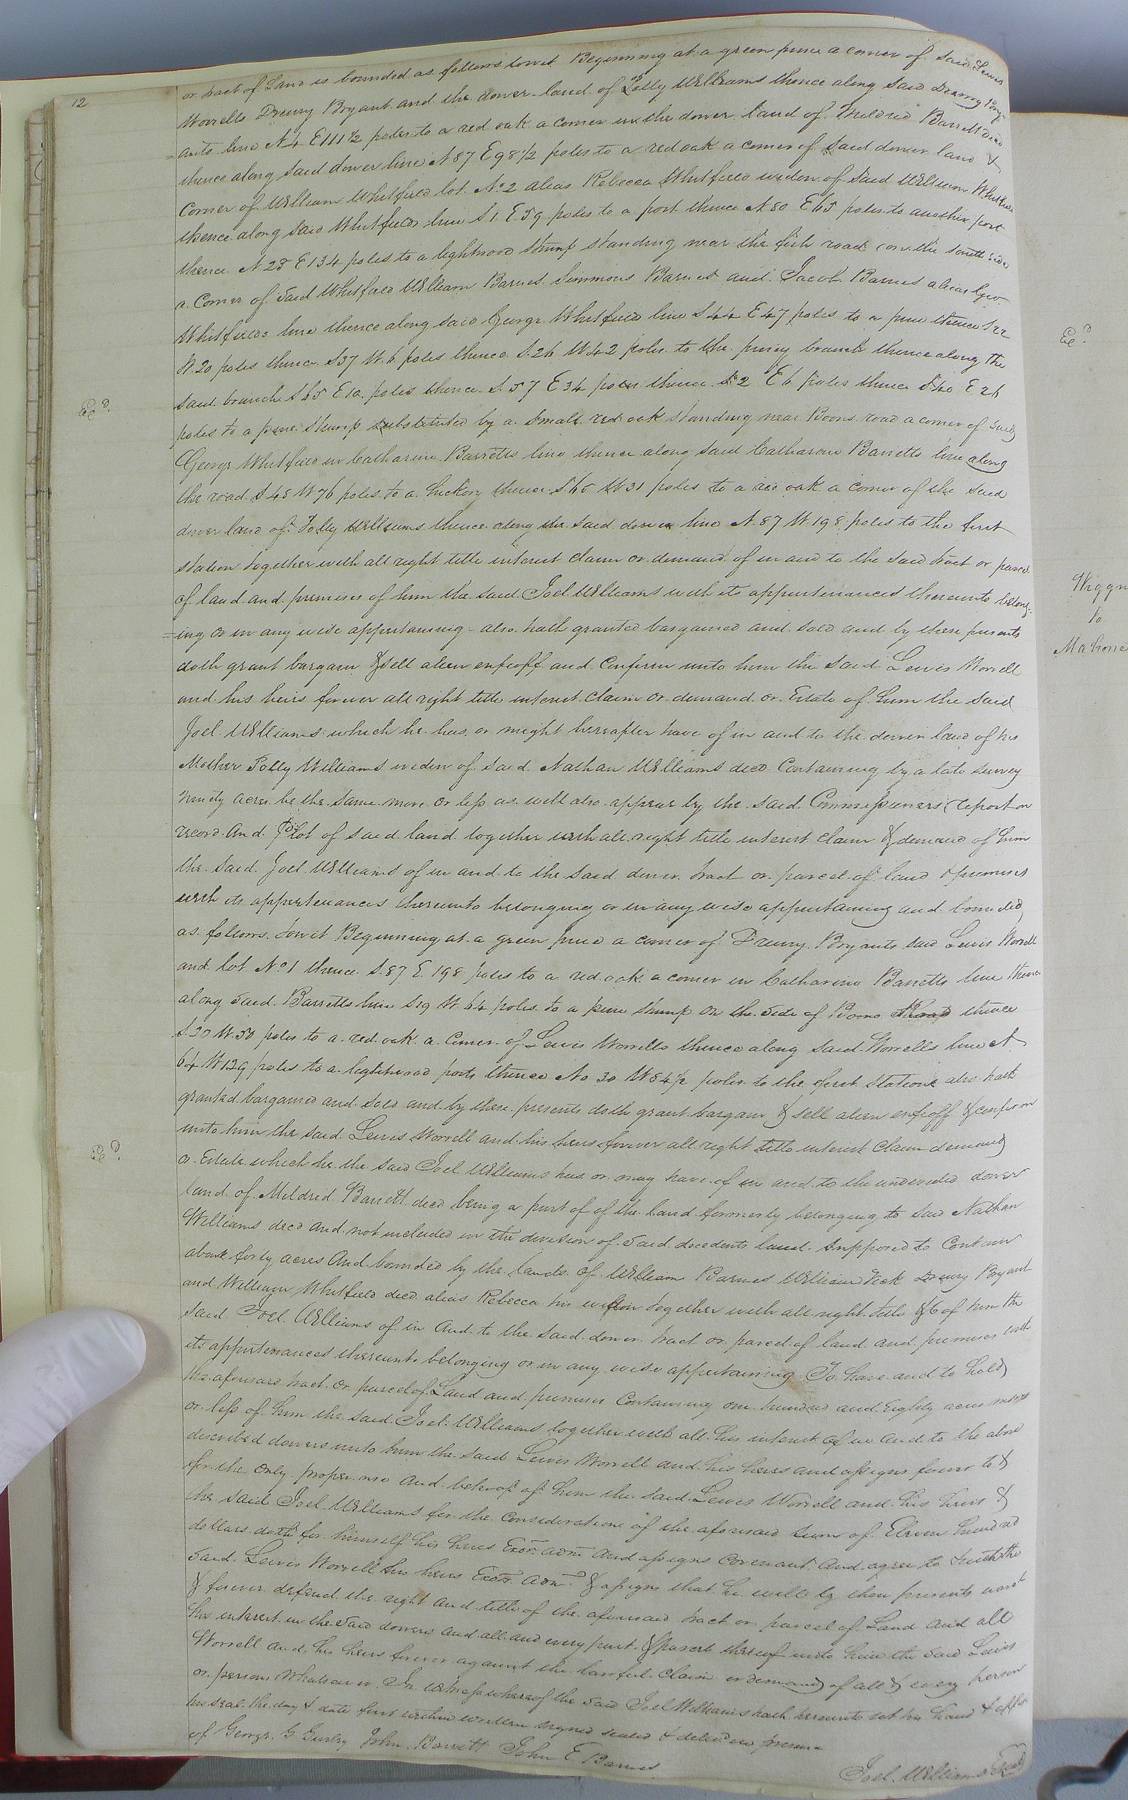 12
or tract of Land is bounded as follows towit Beginning at a green pine a corner of said Lewis
Worrells Drewry Bryant and the dower land of Polly Williams thence along said Drewry Bry-
=ants line N 4 E 111 1/2 poles to a red oak a corner in the dower land of Mildred Barrett decd
thence along said dower line N 87 E 98 1/2 poles to a red oak a corner of said dower land &
Corner of William Whitfield lot No 2 alias Rebecca Whitfield widow of said William Whitfield
thence along said Whitfields line S 1 E 59 poles to a post thence N 80 E 65 poles to another post
thence N 28 E 134 poles to a lightwood Stump standing near the road on the south side
a Corner of Said Whitfield William Barnes Simmons Barnes and Jacob Barnes alias Geo
Whitfields line thence along said George Whitfield line S 44 E 47 poles to a pine thence S 22
W 20 poles thence S 37 W 6 poles thence S 26 W 42 poles to the piney branch thence along the
said branch S 65 E 12 poles thence S 57 E 34 poles thence S 2 E 6 poles thence S 40 E 26
poles to a pine Stump substituted by a Small red oak standing near Boons road a corner of said
George Whitfield in Catharine Barretts line thence along said Catharine Barretts line along
the road S 48 W 76 poles to a hickory thence S 60 W 31 poles to a red oak a corner of the said
dower land of Polly Williams thence along the said dower line N 87 W 198 poles to the first
station together with all right title interest claim or demand of in and to the said tract or parcel
of land and premises of him the said Joel Williams with its appurtenances thereunto belong-
=ing or in any wise appertaining also hath granted bargained and sold and by these presents
doth grant bargain & sell alien enfeoff and Confirm unto him the said Lewis Worrell
and his heirs forever all right title interest claim or demand or Estate of him the said
Joel Williams which he has or might hereafter have of in and to the dower land of his
Mother Polly Williams widow of said Nathan Williams decd Containing by a late survey
ninety acres be the same more or less as will also appear by the said Commissioners report on
record And lot of said land together with all right title interest claim & demand of him
the said Joel Williams of in and to the said dower tract or parcel of land & premises
with its appurtenances thereunto belonging or in any wise appertaining and bounded
as follows towit Beginning at a green pine a corner of Drewry Bryants said Lewis Worrell
and lot No 1 thence S 87 E 198 poles to a red oak a corner in Catharine Barretts line thence
along said Barretts line S 19 W 64 poles to a pine stump on the side of Boons Road thence
S 20 W 50 poles to a red oak a Corner of Lewis Worrells thence along said Worrells line N
64 W 129 poles to a lightwood post thence No 30 W 84 1/2 poles to the first Station also hath
granted bargained and sold and by these presents doth grant bargain & sell alien enfeoff & confirm
unto him the said Lewis Worrell and his heirs forever all right title interest Claim demand
or Estate which he the said Joel Williams has or may have of in and to the undivided dower
land of Mildred Barrett decd being a part of of the land formerly belonging to said Nathan
Williams decd and not included in the division of said decedents land supposed to Contain
about forty acres And bounded by the lands of William Barnes William Drewry Bryant
and William Whitfield decd alias Rebecca his widow together with all right title &c of him the
said Joel Williams of in And to the said dower tract or parcel of land and premises with
its appurtenances thereunto belonging or in any wise appertaining To have and to hold
the aforesaid tract or parcel of Land and premises Containing one hundred and Eighty acres more
or less of him the said Joel Williams together with all his interest of in and to the above
described dowers unto him the said Lewis Worrell and his heirs and assigns forever to &
for the only proper use and behoof of him the said Lewis Worrell and his heirs &
the said Joel Williams for the Consideration of the aforesaid sum of Eleven hundred
dollars doth for himself his heirs Exors admrs and assigns Covenant and agree to & with the
said Lewis Worrell his heirs Exors admrs & assigns that he will by these presents warrant
& forever defend the right and title of the aforesaid tract or parcel of Land and all
his interest in the said dowers and all and every part & parcel thereof unto him the said Lewis
Worrell and his heirs forever against the lawful claim or demand of all & every person
or persons Whatsoever In witness whereof the said Joel Williams hath hereunto set his hand & affixed
his seal the day & date first within written signed sealed & delivered in presence
of George G Gurley John Barrett John E Barnes
Joel Williams (Seal)
Exd.
Exd.
Exd.
to
Mahone